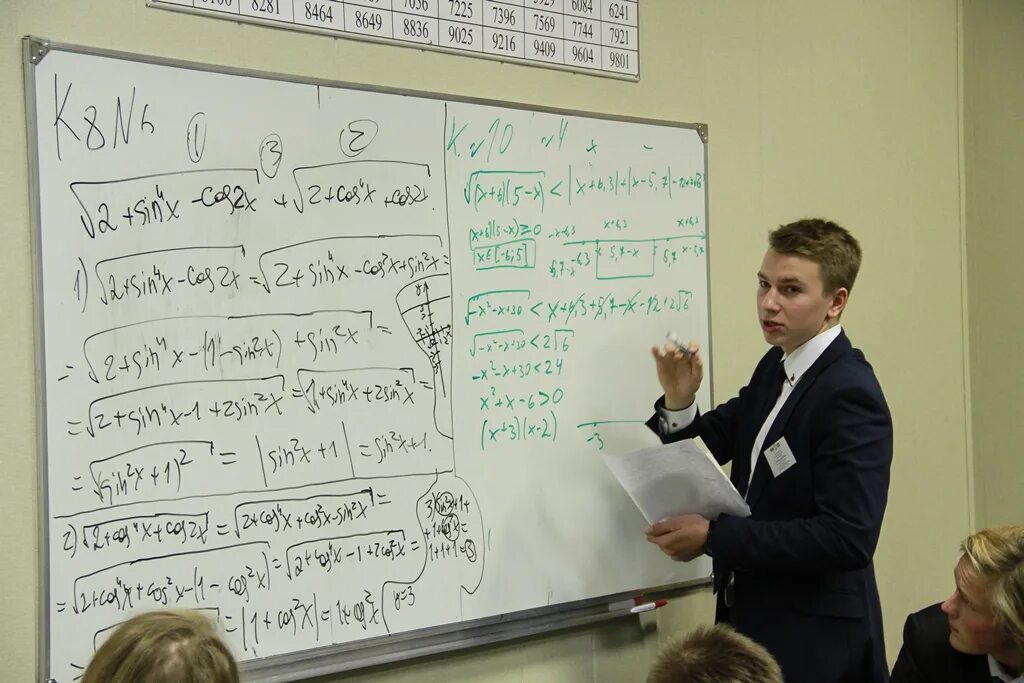 8281 8464 8649 8836 7056 7225 7396 7569 7744 7921 6084 6241
9025 9216 9409 9604 9801
K8N6
① ③ ②
√(2+sin⁴x-cos2x) + √(2+cos⁴x+cos2x)
1) √(2+sin⁴x-cos2x) = √(2+sin⁴x-cos²x+sin²x) =
= √(2+sin⁴x-(1-sin²x)+sin²x) =
= √(2+sin⁴x-1+2sin²x) = √(1+sin⁴x+2sin²x) =
= √(sin²x+1)² = |sin²x+1| = sin²x+1.
2) √(2+cos⁴x+cos2x) = √(2+cos⁴x+cos²x-sin²x) =
= √(2+cos⁴x+cos²x-(1-cos²x)) = √(2+cos⁴x-1+2cos²x) =
= |1+cos²x| = 1+cos²x
3) sin²x+1+
+1+cos²x=
1+1+1=③
y=3
K.n10 n4 + -
√((x+6)(5-x)) < |x+6,3|+|x-5,7|-12+2√6
(x+6)(5-x)≥0
x∈[-6;5]
-x-6,3 x+6,3 x+6,3
5,7-x -6,3 5,7-x 5,7 x-5,7
√(-x²-x+30) < x+6,3+5,7-x-12+2√6
√(-x²-x+30) < 2√6
-x²-x+30<24
x²+x-6>0
(x+3)(x-2)
-3